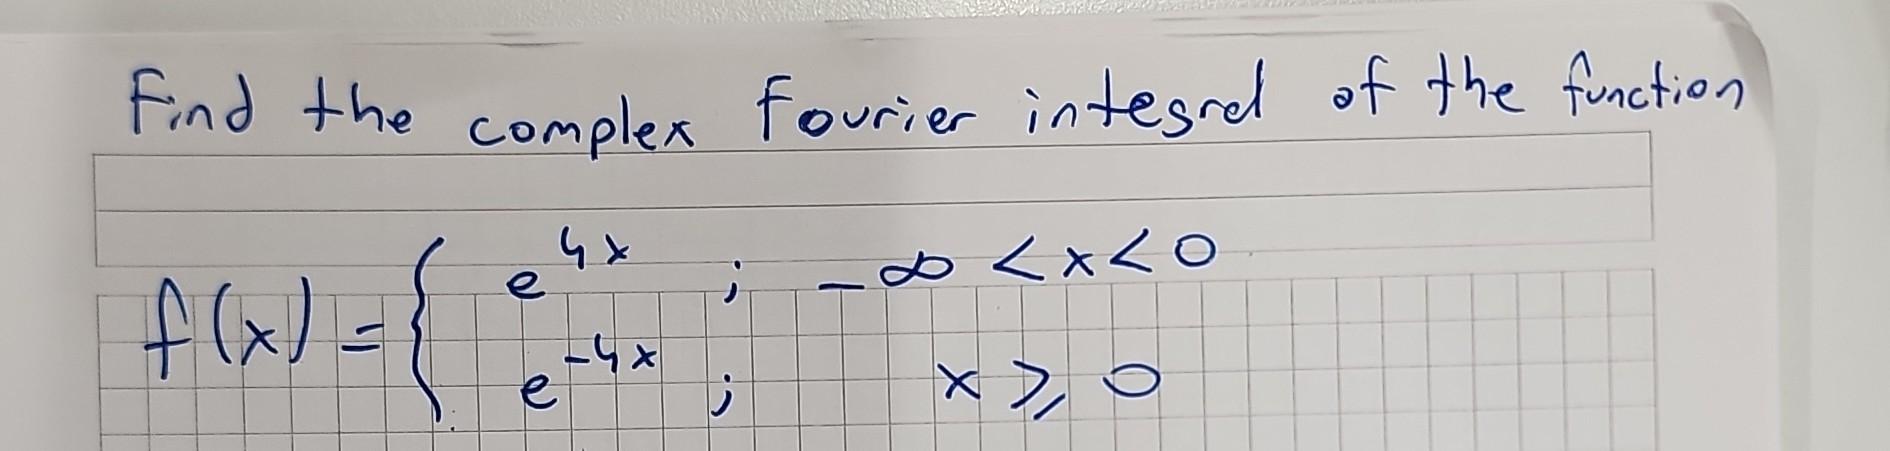 Find the complex Fourier integral of the function
f(x) = { e^{4x} ; -∞ < x < 0
e^{-4x} ; x ⩾ 0